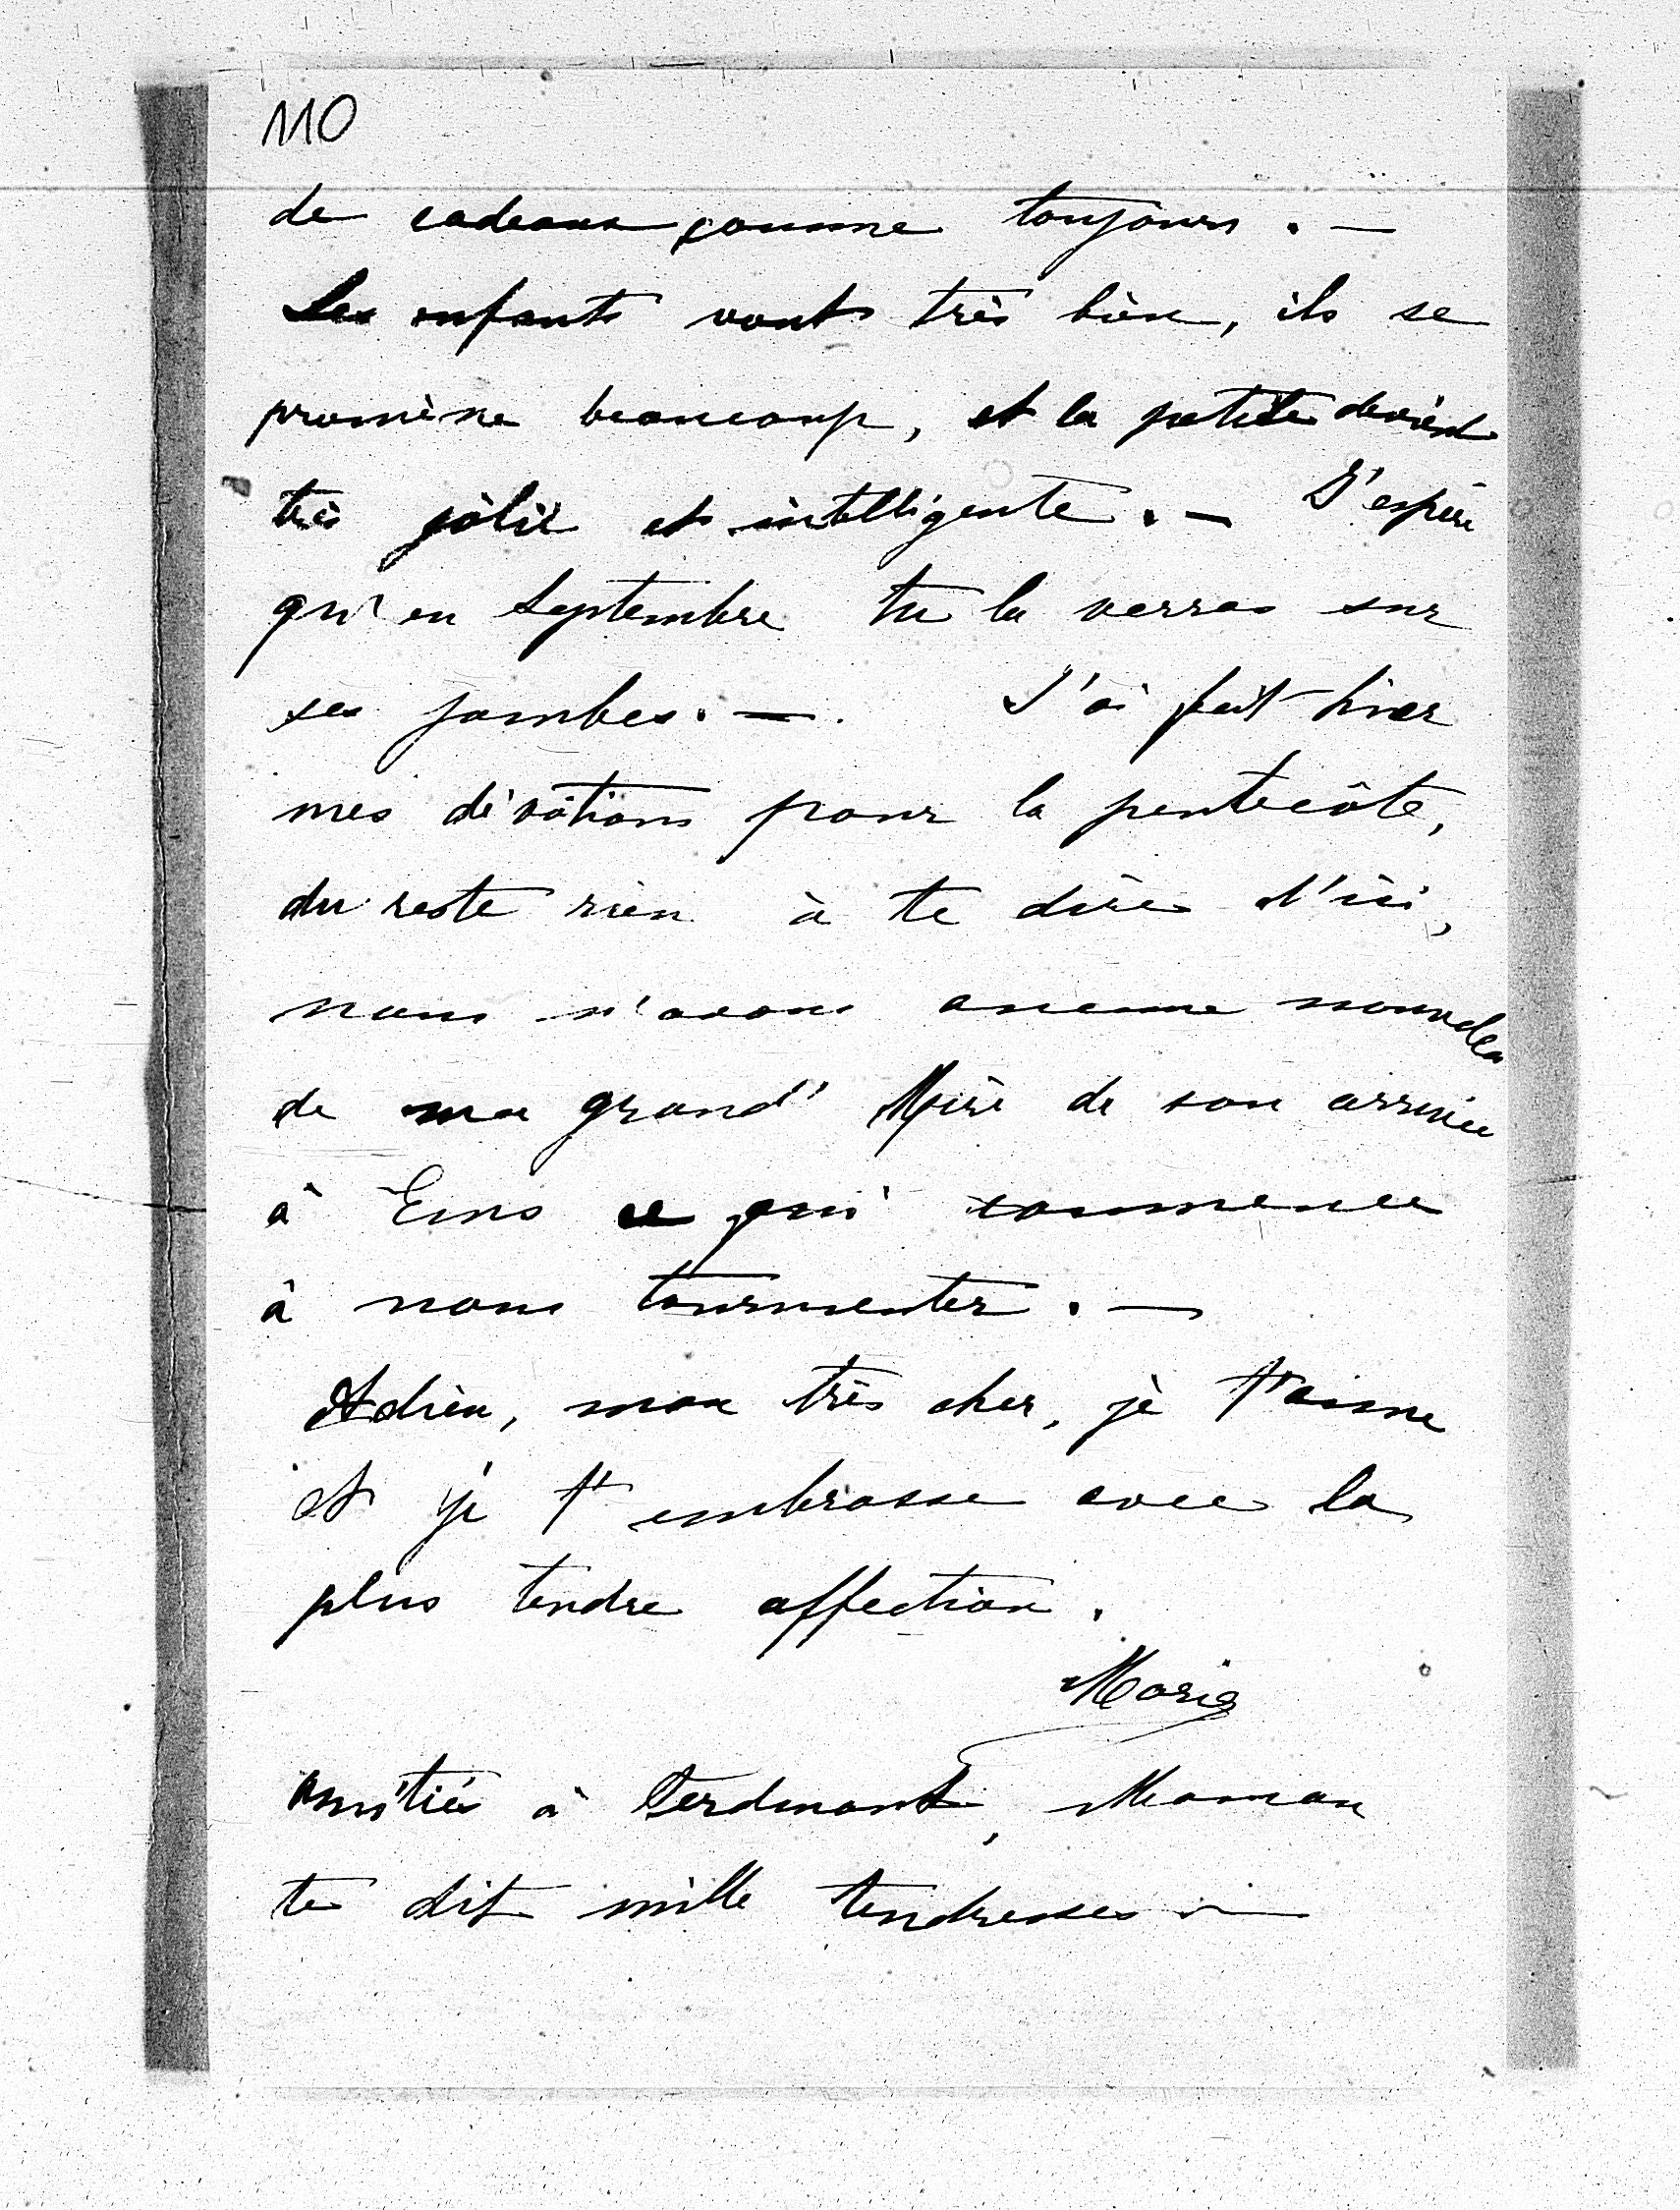 110
de cadeaux comme toujours. —
Les enfants vont très bien, ils se
promène beaucoup, et la petite devient
très jolie et intelligente. — J'espère
qu'en Septembre tu la verras sur
ses jambes. — J'ai fait hier
mes dévotions pour la pentecôte,
du reste rien à te dire d'ici,
nous n'avons aucune nouvelles
de ma grand' Mère de son arrivée
à Ems ce qui commence
à nous tourmenter. —
Adieu, mon très cher, je t'aime
et je t'embrasse avec la
plus tendre affection.
Marie
amitiés à Ferdinand, Maman
te dit mille tendresses. —